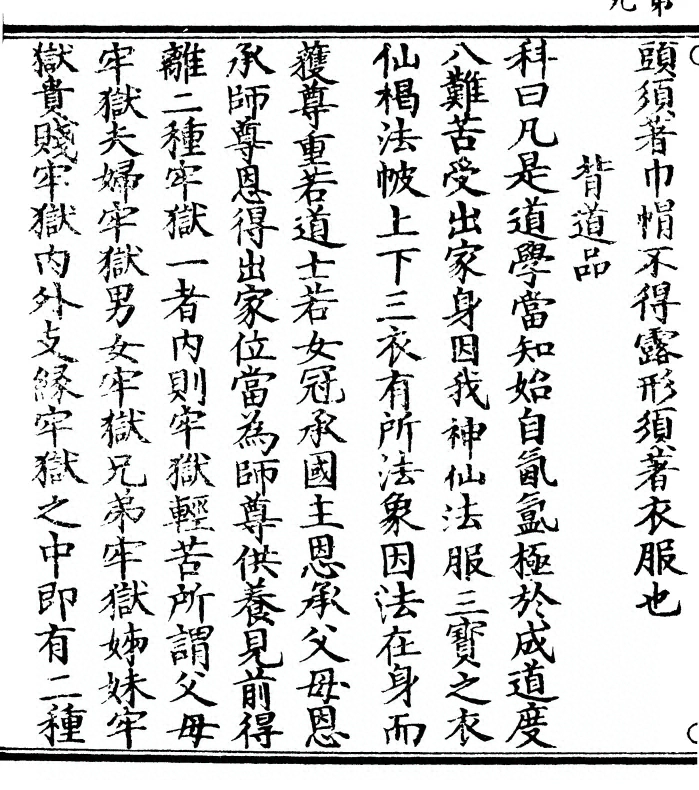 頭須著巾帽不得露形須著衣服也
背道品
科曰凡是道學當知始自氤氳極於成道度
八難苦受出家身因我神仙法服三寶之衣
仙褐法帔上下三衣有所法象因法在身而
獲尊重若道士若女冠承國主恩承父母恩
承師尊恩得出家位當為師尊供養見前得
離二種牢獄一者內則牢獄輕苦所謂父母
牢獄夫婦牢獄男女牢獄兄弟牢獄姊妹牢
獄貴賤牢獄內外支緣牢獄之中即有二種